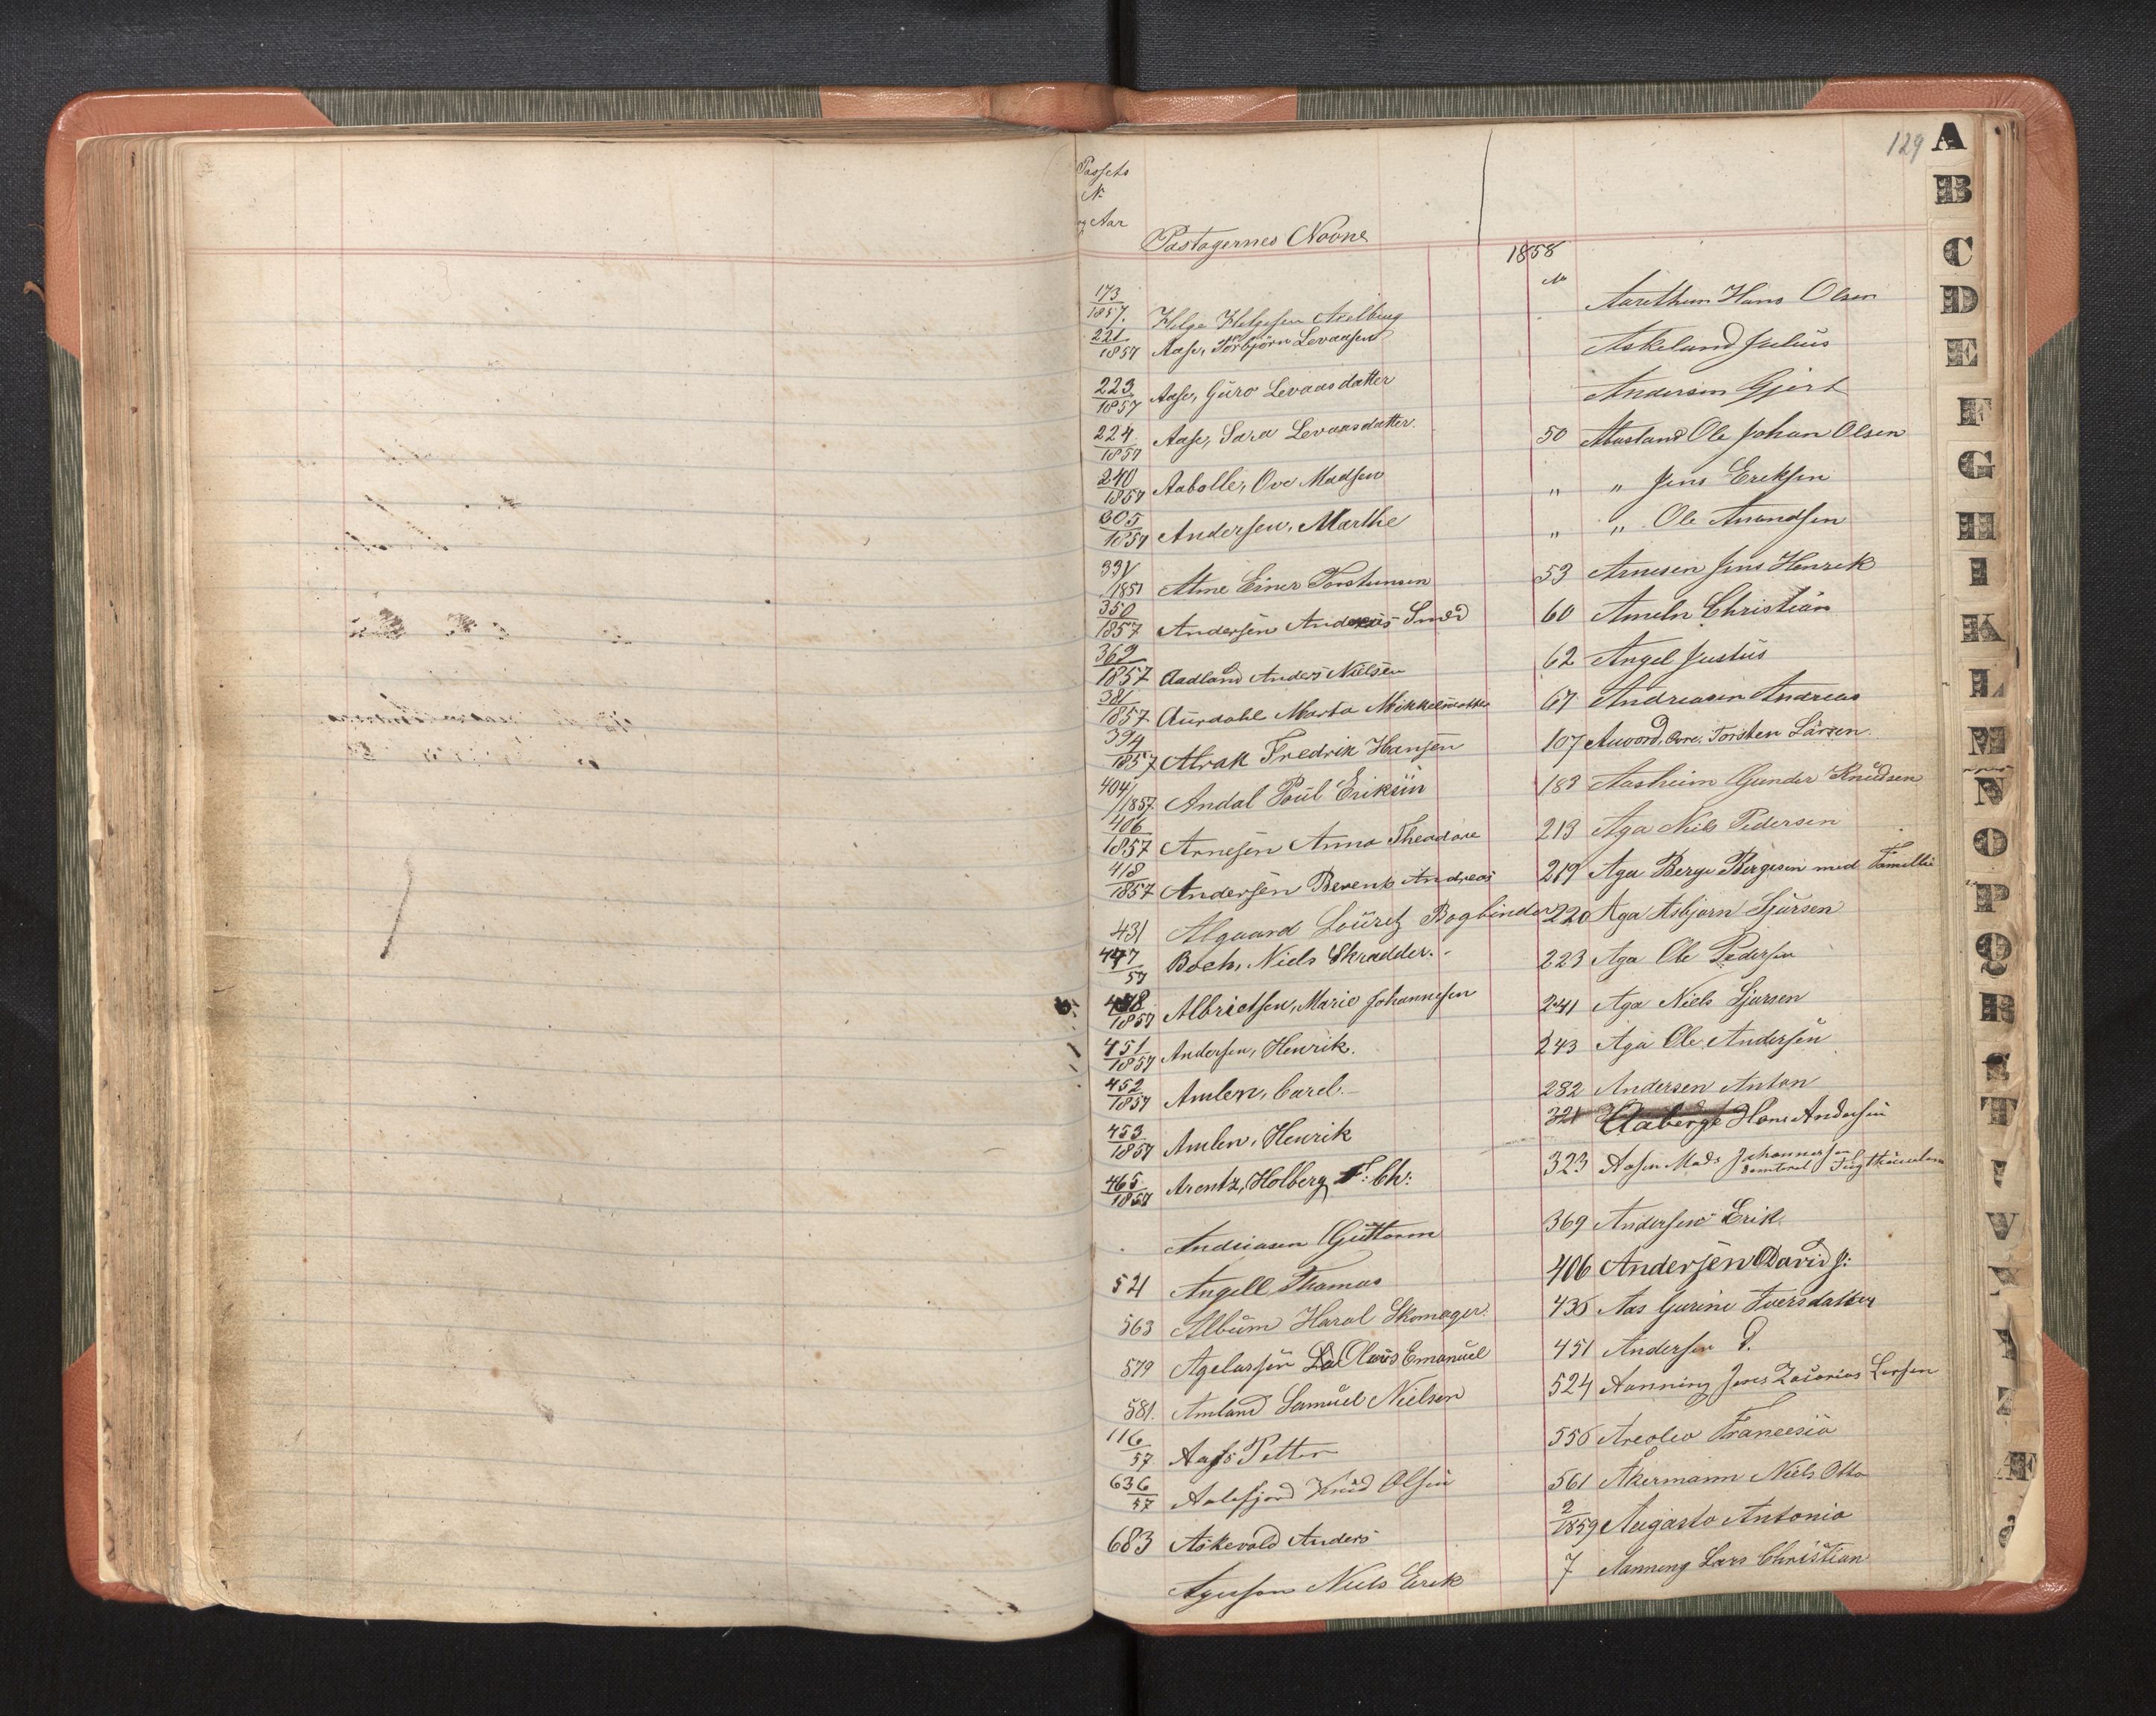 129
Passets
N.
og Aar
Pastagernes Navne
173/1857. Helge Helgesen
221/1857 Aase, Torbjörn Levaasen
223/1857 Aase, Guro Levaasdatter
224/1857 Aase, Sara Levaasdatter.
240/1857 Aabolle, Ove Madsen
605/1857 Andersen, Marthe
331/1857 Alme Einer Torstensen
350/1857 Andersen Andreas Smed
369/1857 Aadland Anders Nielsen
381/1857 Aurdahl Marta Mikkelsdatter
394/1857 Alrak Fredrik Hansen
404/1857 Andal Poul Eriksen
406/1857 Arnesen Anna Theodore
418/1857 Andersen Berent Andreas
431 Algaard Louretz Bogbinder
447/57 Boch, Niels Skradder.
448/1857 Albrietsen, Marie Johannesen
451/1857 Andersen, Henrik.
452/1857 Amlen, Carel.
453/1857 Amlen, Henrik
465/1857 Arentz, Holberg F: Ch:
Andreasen Guttorm
521 Angell Thomas
563 Album Haral Skomager.
579 Agelarsen Olaus Emanuel
581. Amland Samuel Nielsen
116/57 Aass Petter
636/57 Aalefjord Knud Olsen
683 Askevold Anders
Agersen Niels Erik
1858
No
Aarethun Hans Olsen
Askeland Julius
Andersen Gjert
50 Aastand Ole Johan Olsen
" " Jens Eriksen
" " Ole Amundsen
53 Arnesen Jens Henrik
60 Ameln Christian
62 Angel Justus
67 Andreasen Andreas
107 Auvord, Ovre, Torsten Larsen.
183 Aasheim Gunder Knudsen
213 Aga Nils Pedersen
219 Aga Berge Bergesen med Famillie
220 Aga Asbjørn Sjursen
223 Aga Ole Pedersen
241 Aga Niels Sjursen
243 Aga Ole Andersen
282 Andersen Anton
321 Aaberge Hans Andersen
323 Aasen Mads Johannessen
369 Andersen Erik.
406 Andersen David J:
436 Aas Gurine Iversdatter
451 Andersen P.
524 Aanning Jens Zacarias Larsen
556 Areoleo Francesio
561 Akermann Niels Otto
2/1859 Aigasto Antonio
7 Aanning Lars Christian
A
B
C
D
E
F
G
H
I
K
L
M
N
O
P
Q
R
S
T
V
Z
Æ